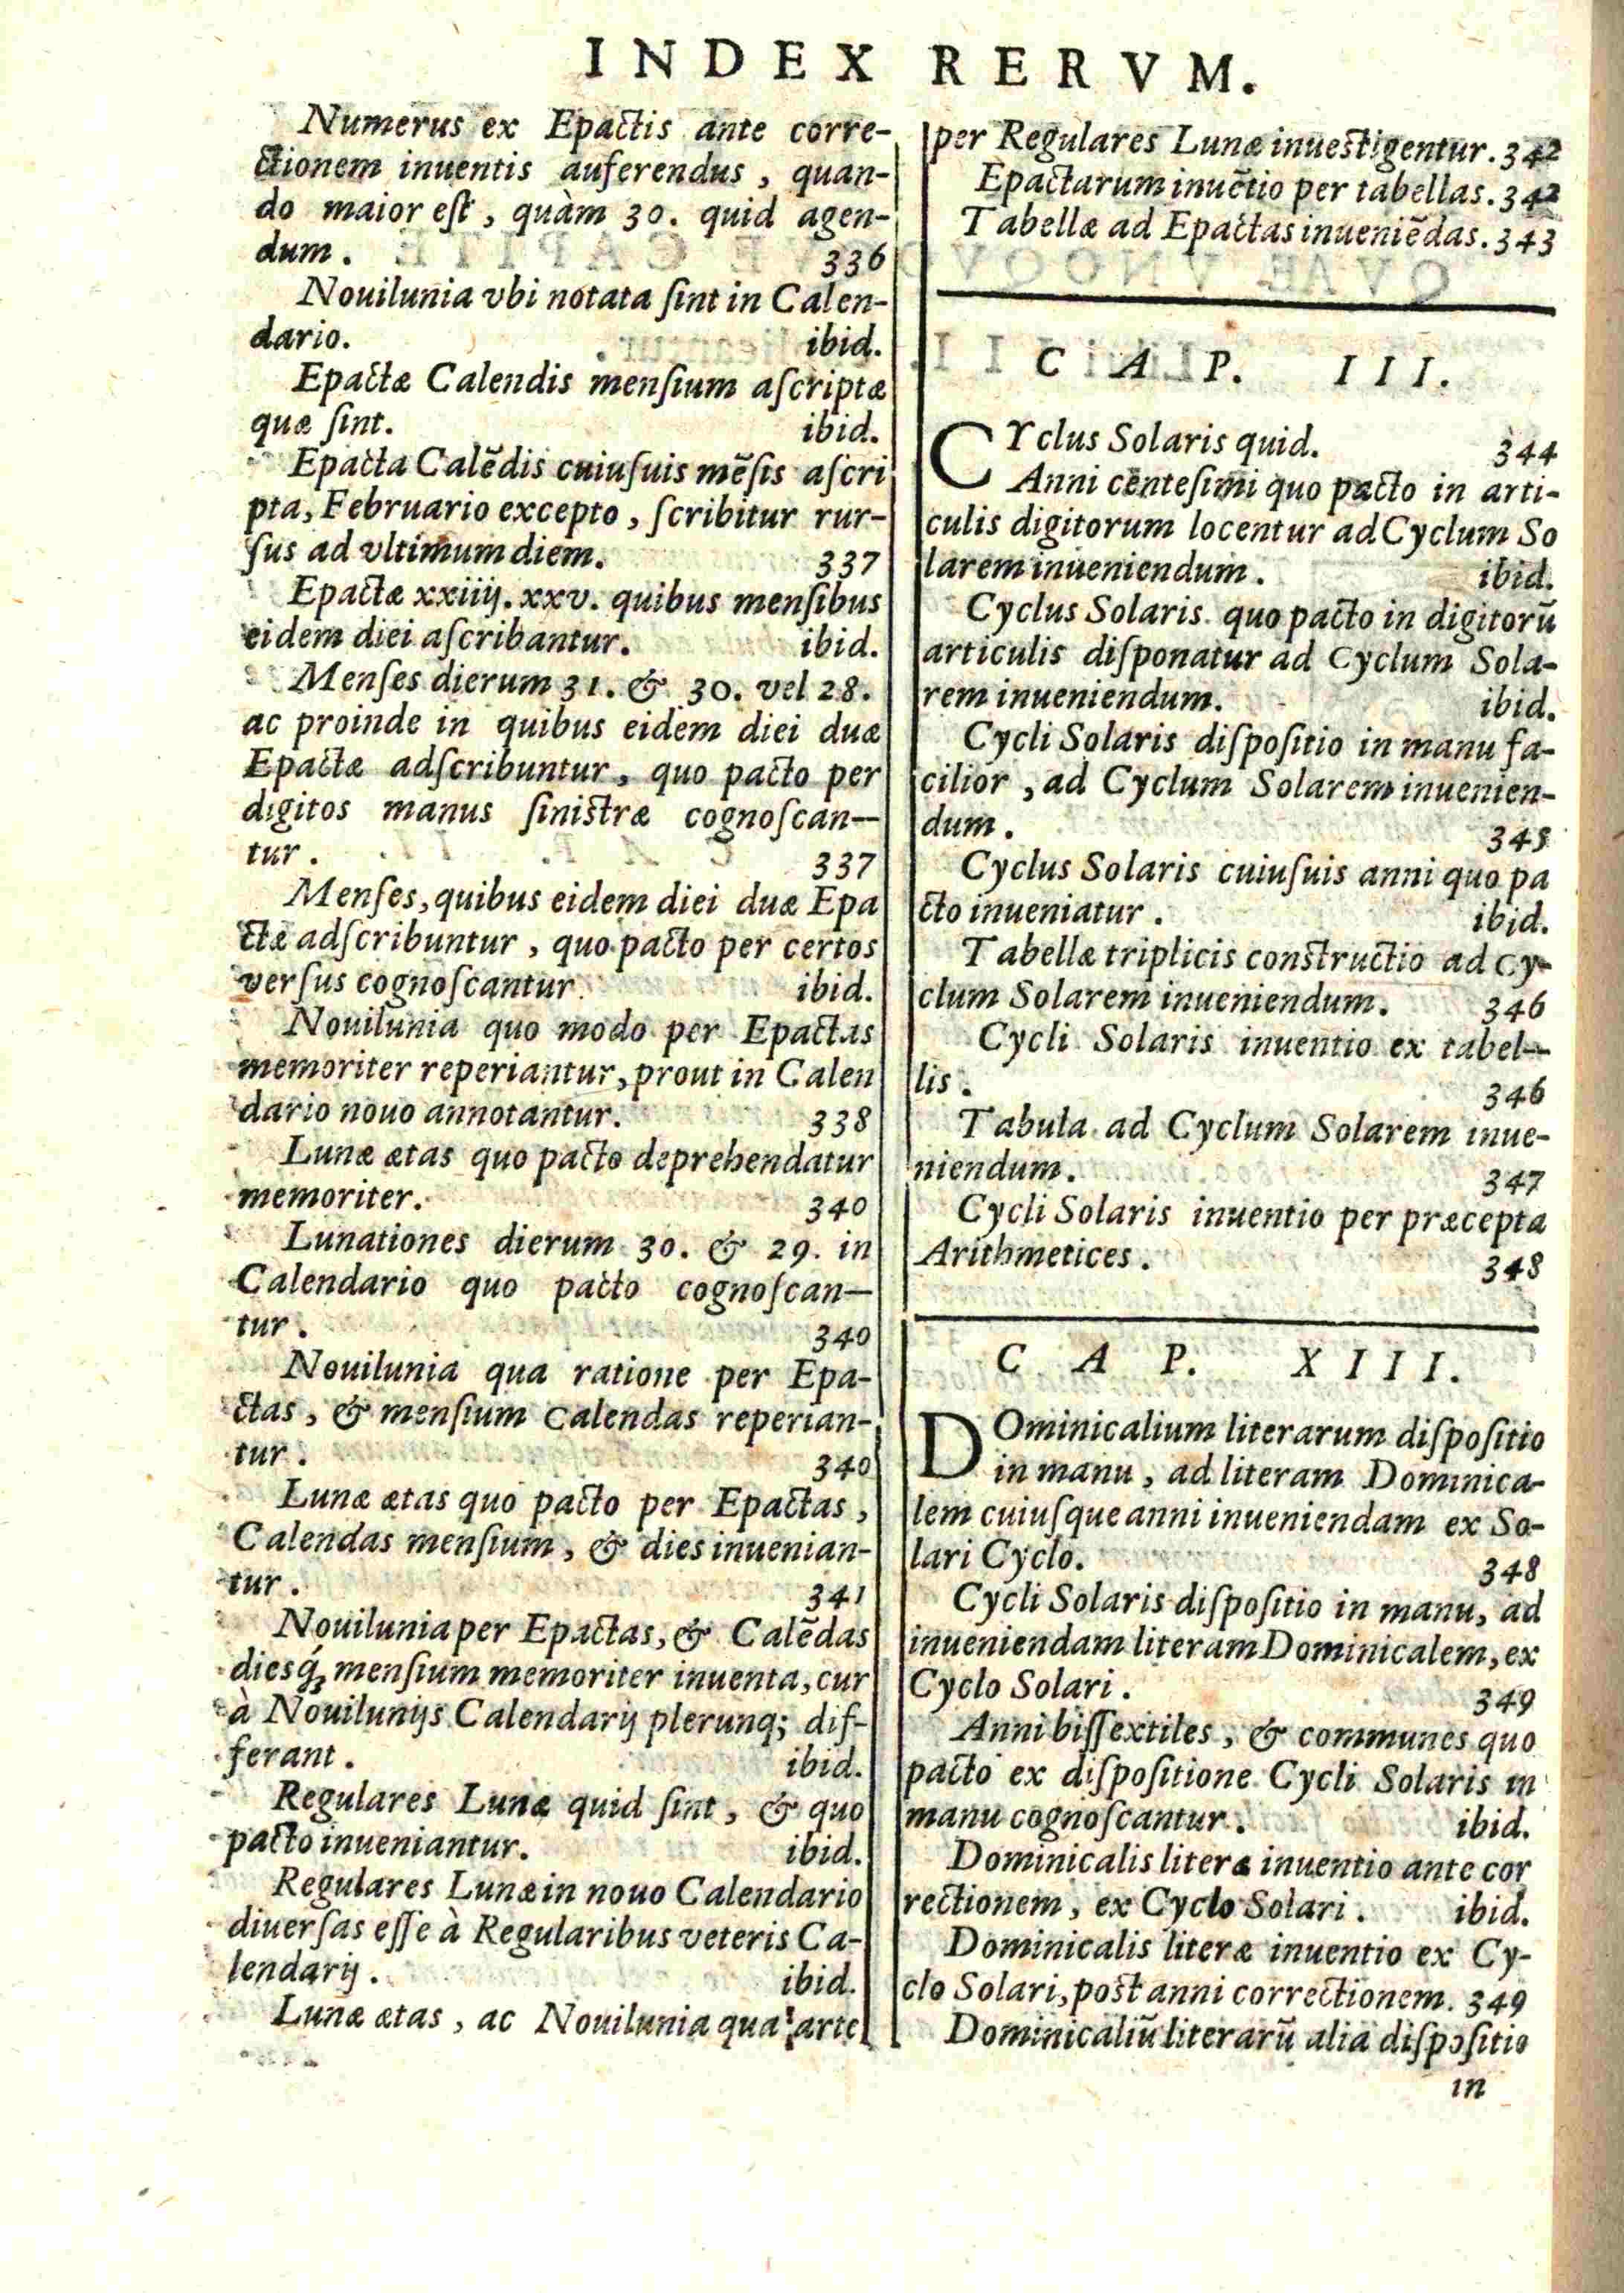 INDEX RERVM.
Numerus ex Epactis ante corre-
ctionem inuentis auferendus, quan-
do maior eſt, quàm 30. quid agen-
dum. 336
Nouilunia vbi notata ſint in Calen-
dario. ibid.
Epactæ Calendis menſium aſcriptæ
quæ ſint. ibid.
Epacta Calēdis cuiuſuis mēſis aſcri
pta, Februario excepto, ſcribitur rur-
ſus ad vltimum diem. 337
Epactæ xxiiij. xxv. quibus menſibus
eidem diei aſcribantur. ibid.
Menſes dierum 31. & 30. vel 28.
ac proinde in quibus eidem diei duæ
Epactæ adſcribuntur, quo pacto per
digitos manus ſiniſtræ cognoſcan—
tur. 337
Menſes, quibus eidem diei duæ Epa
ctæ adſcribuntur, quo pacto per certos
verſus cognoſcantur. ibid.
Nouilunia quo modo per Epactas
memoriter reperiantur, prout in Calen
dario nouo annotantur. 338
Lunæ ætas quo pacto deprehendatur
memoriter. 340
Lunationes dierum 30. & 29. in
Calendario quo pacto cognoſcan—
tur. 340
Nouilunia qua ratione per Epa-
ctas, & menſium Calendas reperian-
tur. 340
Lunæ ætas quo pacto per Epactas,
Calendas menſium, & dies inuenian-
tur. 341
Nouilunia per Epactas, & Calēdas
diesq́ȝ menſium memoriter inuenta, cur
à Nouilunijs Calendarij plerunq; dif-
ferant. ibid.
Regulares Lunæ quid ſint, & quo
pacto inueniantur. ibid.
Regulares Lunæ in nouo Calendario
diuerſas eſſe à Regularibus veteris Ca-
lendarij. ibid.
Lunæ ætas, ac Nouilunia qua arte
per Regulares Lunæ inueſtigentur. 342
Epactarum inuētio per tabellas. 342
Tabellæ ad Epactas inueniēdas. 343
CAP. III.
CYclus Solaris quid. 344
Anni centeſimi quo pacto in arti-
culis digitorum locentur ad Cyclum So
larem inueniendum. ibid.
Cyclus Solaris quo pacto in digitorū
articulis diſponatur ad Cyclum Sola-
rem inueniendum. ibid.
Cycli Solaris diſpoſitio in manu fa-
cilior, ad Cyclum Solarem inuenien-
dum. 345
Cyclus Solaris cuiuſuis anni quo pa
cto inueniatur. ibid.
Tabellæ triplicis conſtructio ad Cy-
clum Solarem inueniendum. 346
Cycli Solaris inuentio ex tabel—
lis. 346
Tabula ad Cyclum Solarem inue-
niendum. 347
Cycli Solaris inuentio per præcepta
Arithmetices. 348
CAP. XIII.
DOminicalium literarum diſpoſitio
in manu, ad literam Dominica-
lem cuiuſque anni inueniendam ex So-
lari Cyclo. 348
Cycli Solaris diſpoſitio in manu, ad
inueniendam literam Dominicalem, ex
Cyclo Solari. 349
Anni biſſextiles, & communes quo
pacto ex diſpoſitione Cycli Solaris in
manu cognoſcantur. ibid.
Dominicalis literæ inuentio ante cor
rectionem, ex Cyclo Solari. ibid.
Dominicalis literæ inuentio ex Cy-
clo Solari, poſt anni correctionem. 349
Dominicaliū literarū alia diſpoſitio
in